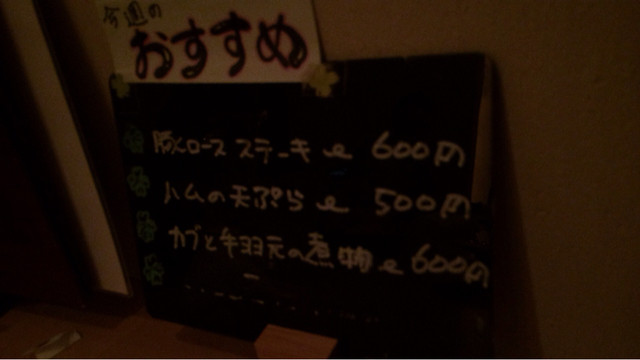 今週の
おすすめ
豚ロース ステーキ 600円
ハムの天ぷら 500円
カブと手羽元の煮物 600円